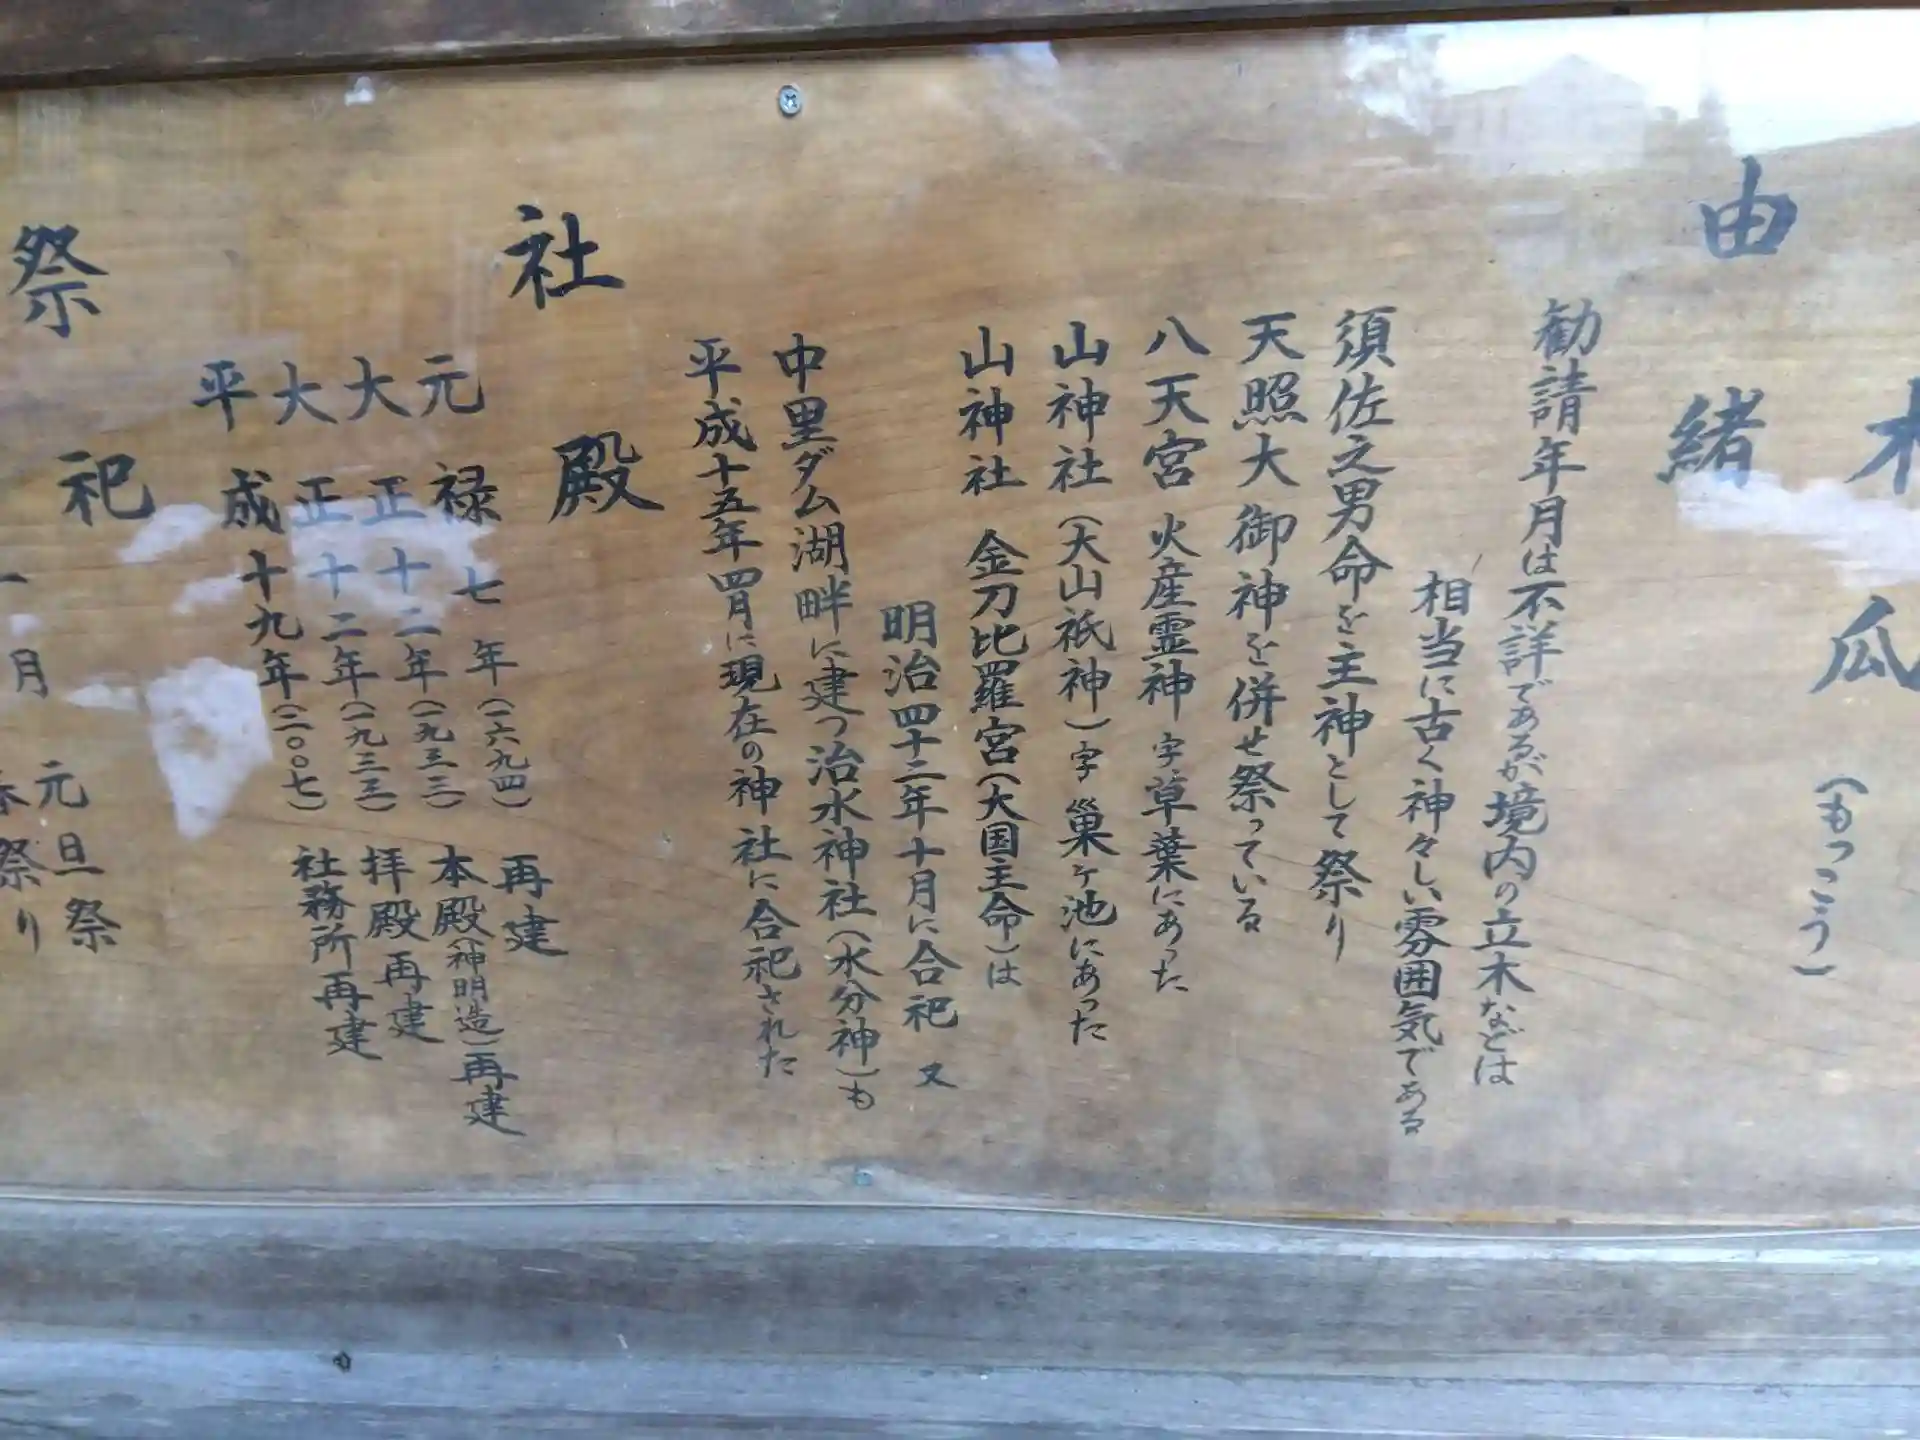 木瓜(もっこう)
由緒
勧請年月は不詳であるが境内の立木などは
相当に古く神々しい雰囲気である
須佐之男命を主神として祭り
天照大御神を併せ祭っている
八天宮 火産霊神 字草葉にあった
山神社(大山祇神)字巣ヶ池にあった
山神社 金刀比羅宮(大国主命)は
明治四十二年十月に合祀 又
中里ダム湖畔に建つ治水神社(水分神)も
平成十五年四月に現在の神社に合祀された
社殿
元禄七年(一六九四) 再建
大正十二年(一九三三) 本殿(神明造)再建
大正十二年(一九三三) 拝殿再建
平成十九年(二〇〇七) 社務所再建
祭祀
一月 元旦祭
祭り